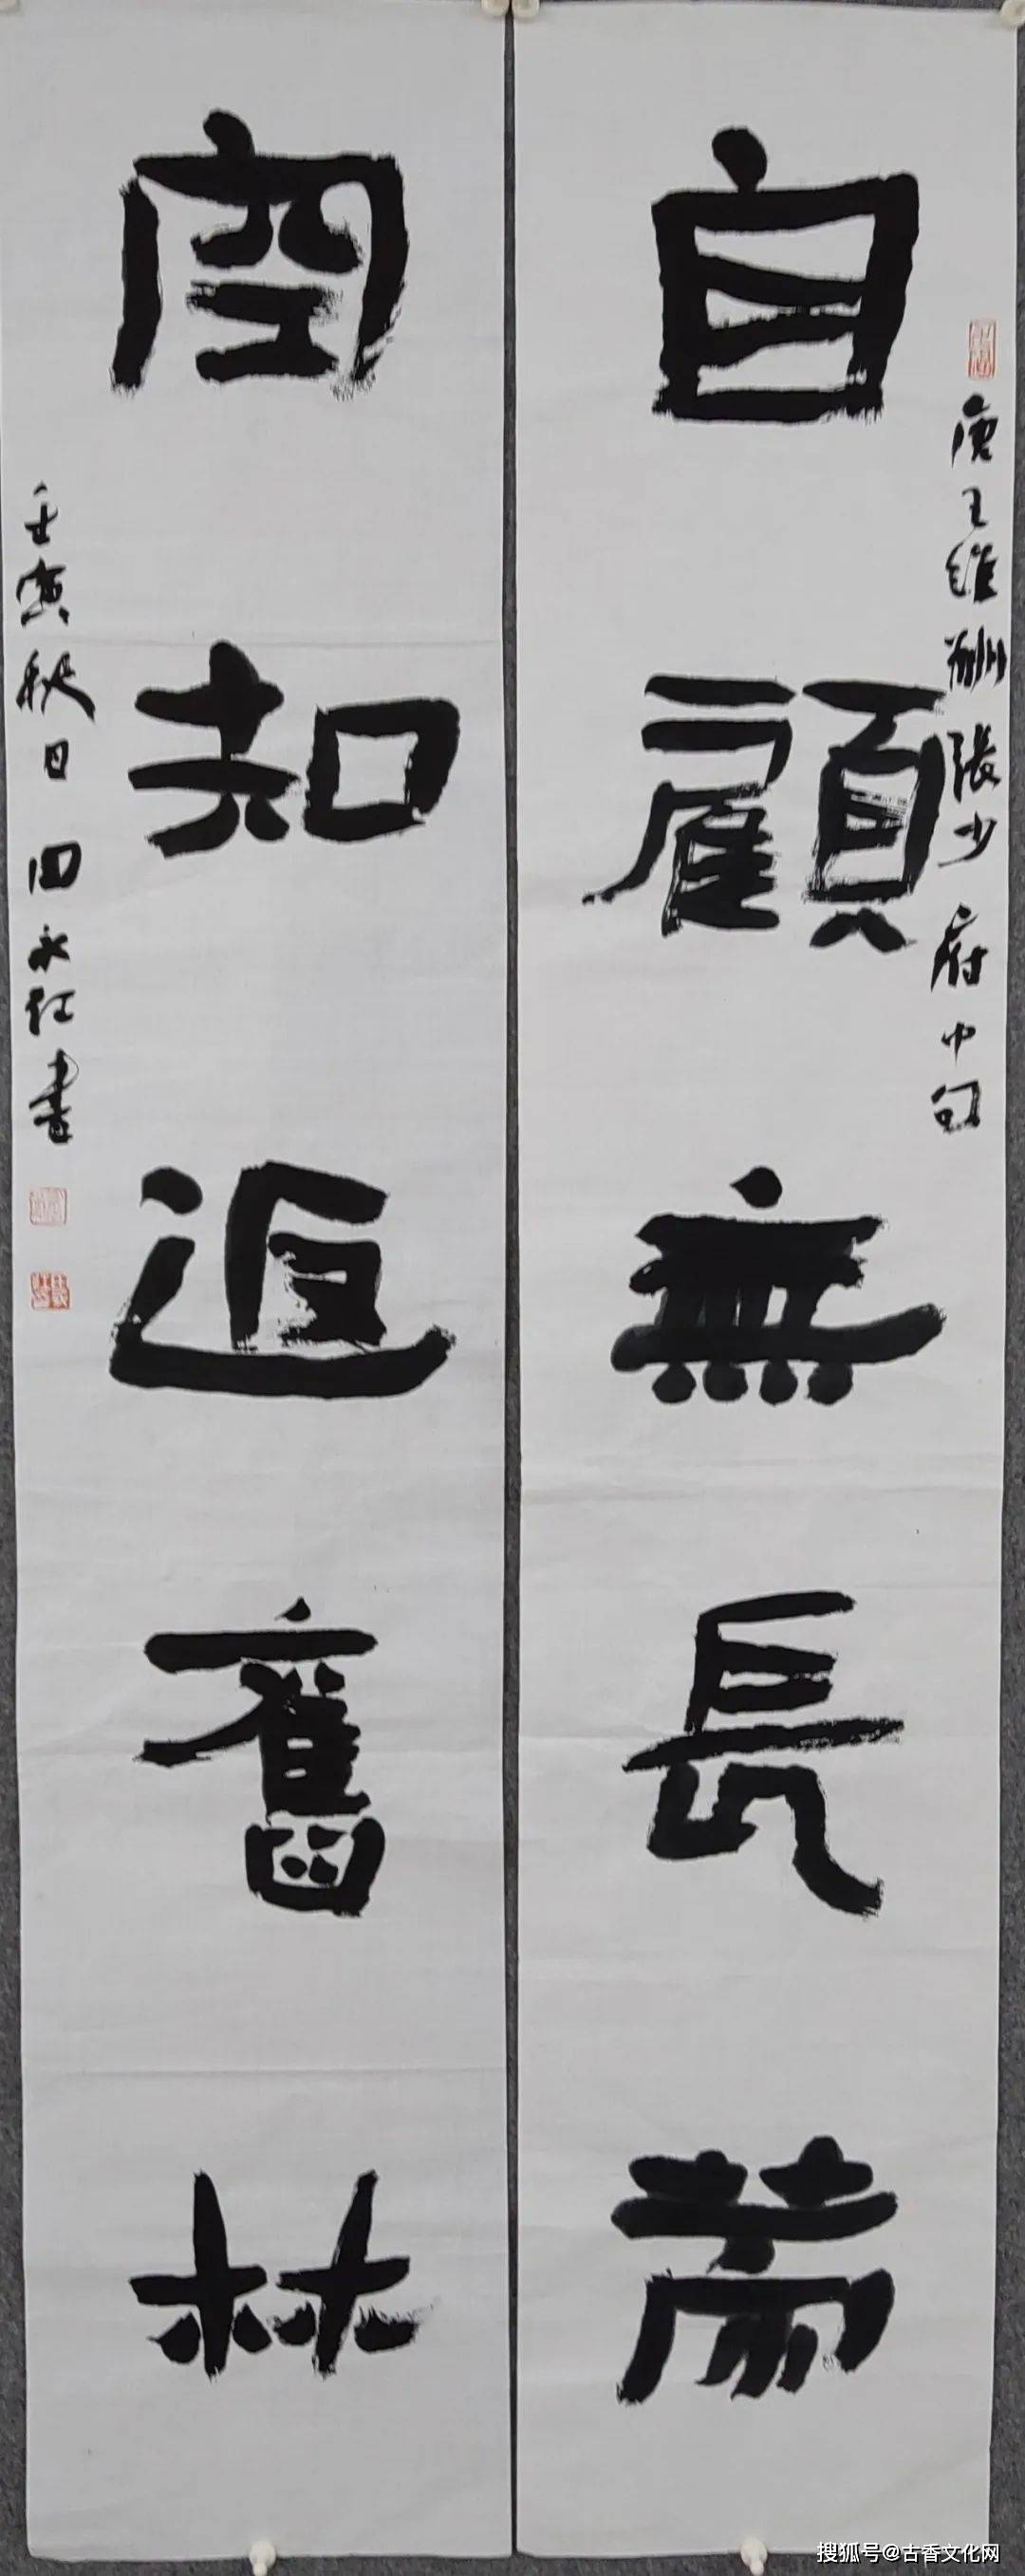 自顧無長策
唐王維酬張少府中句
空知返舊林
壬寅秋日田永红書
搜狐号@古香文化网